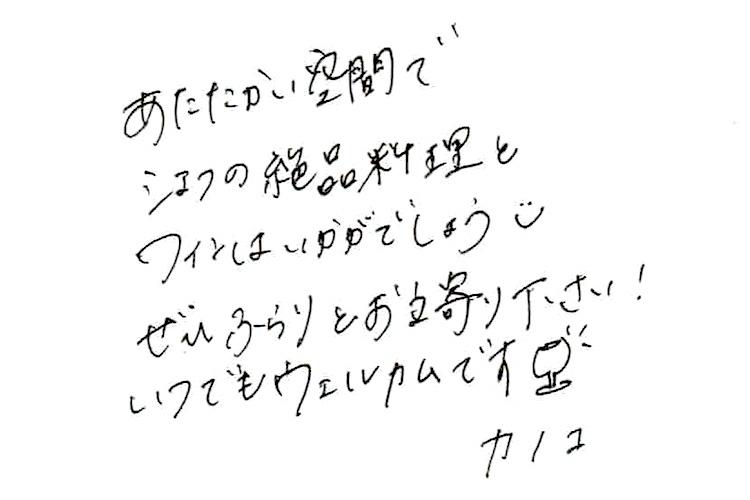 あたたかい空間で
シェフの絶品料理と
ワインはいかがでしょう
ぜひふらりとお立寄り下さい!
いつでもウェルカムです
カノコ